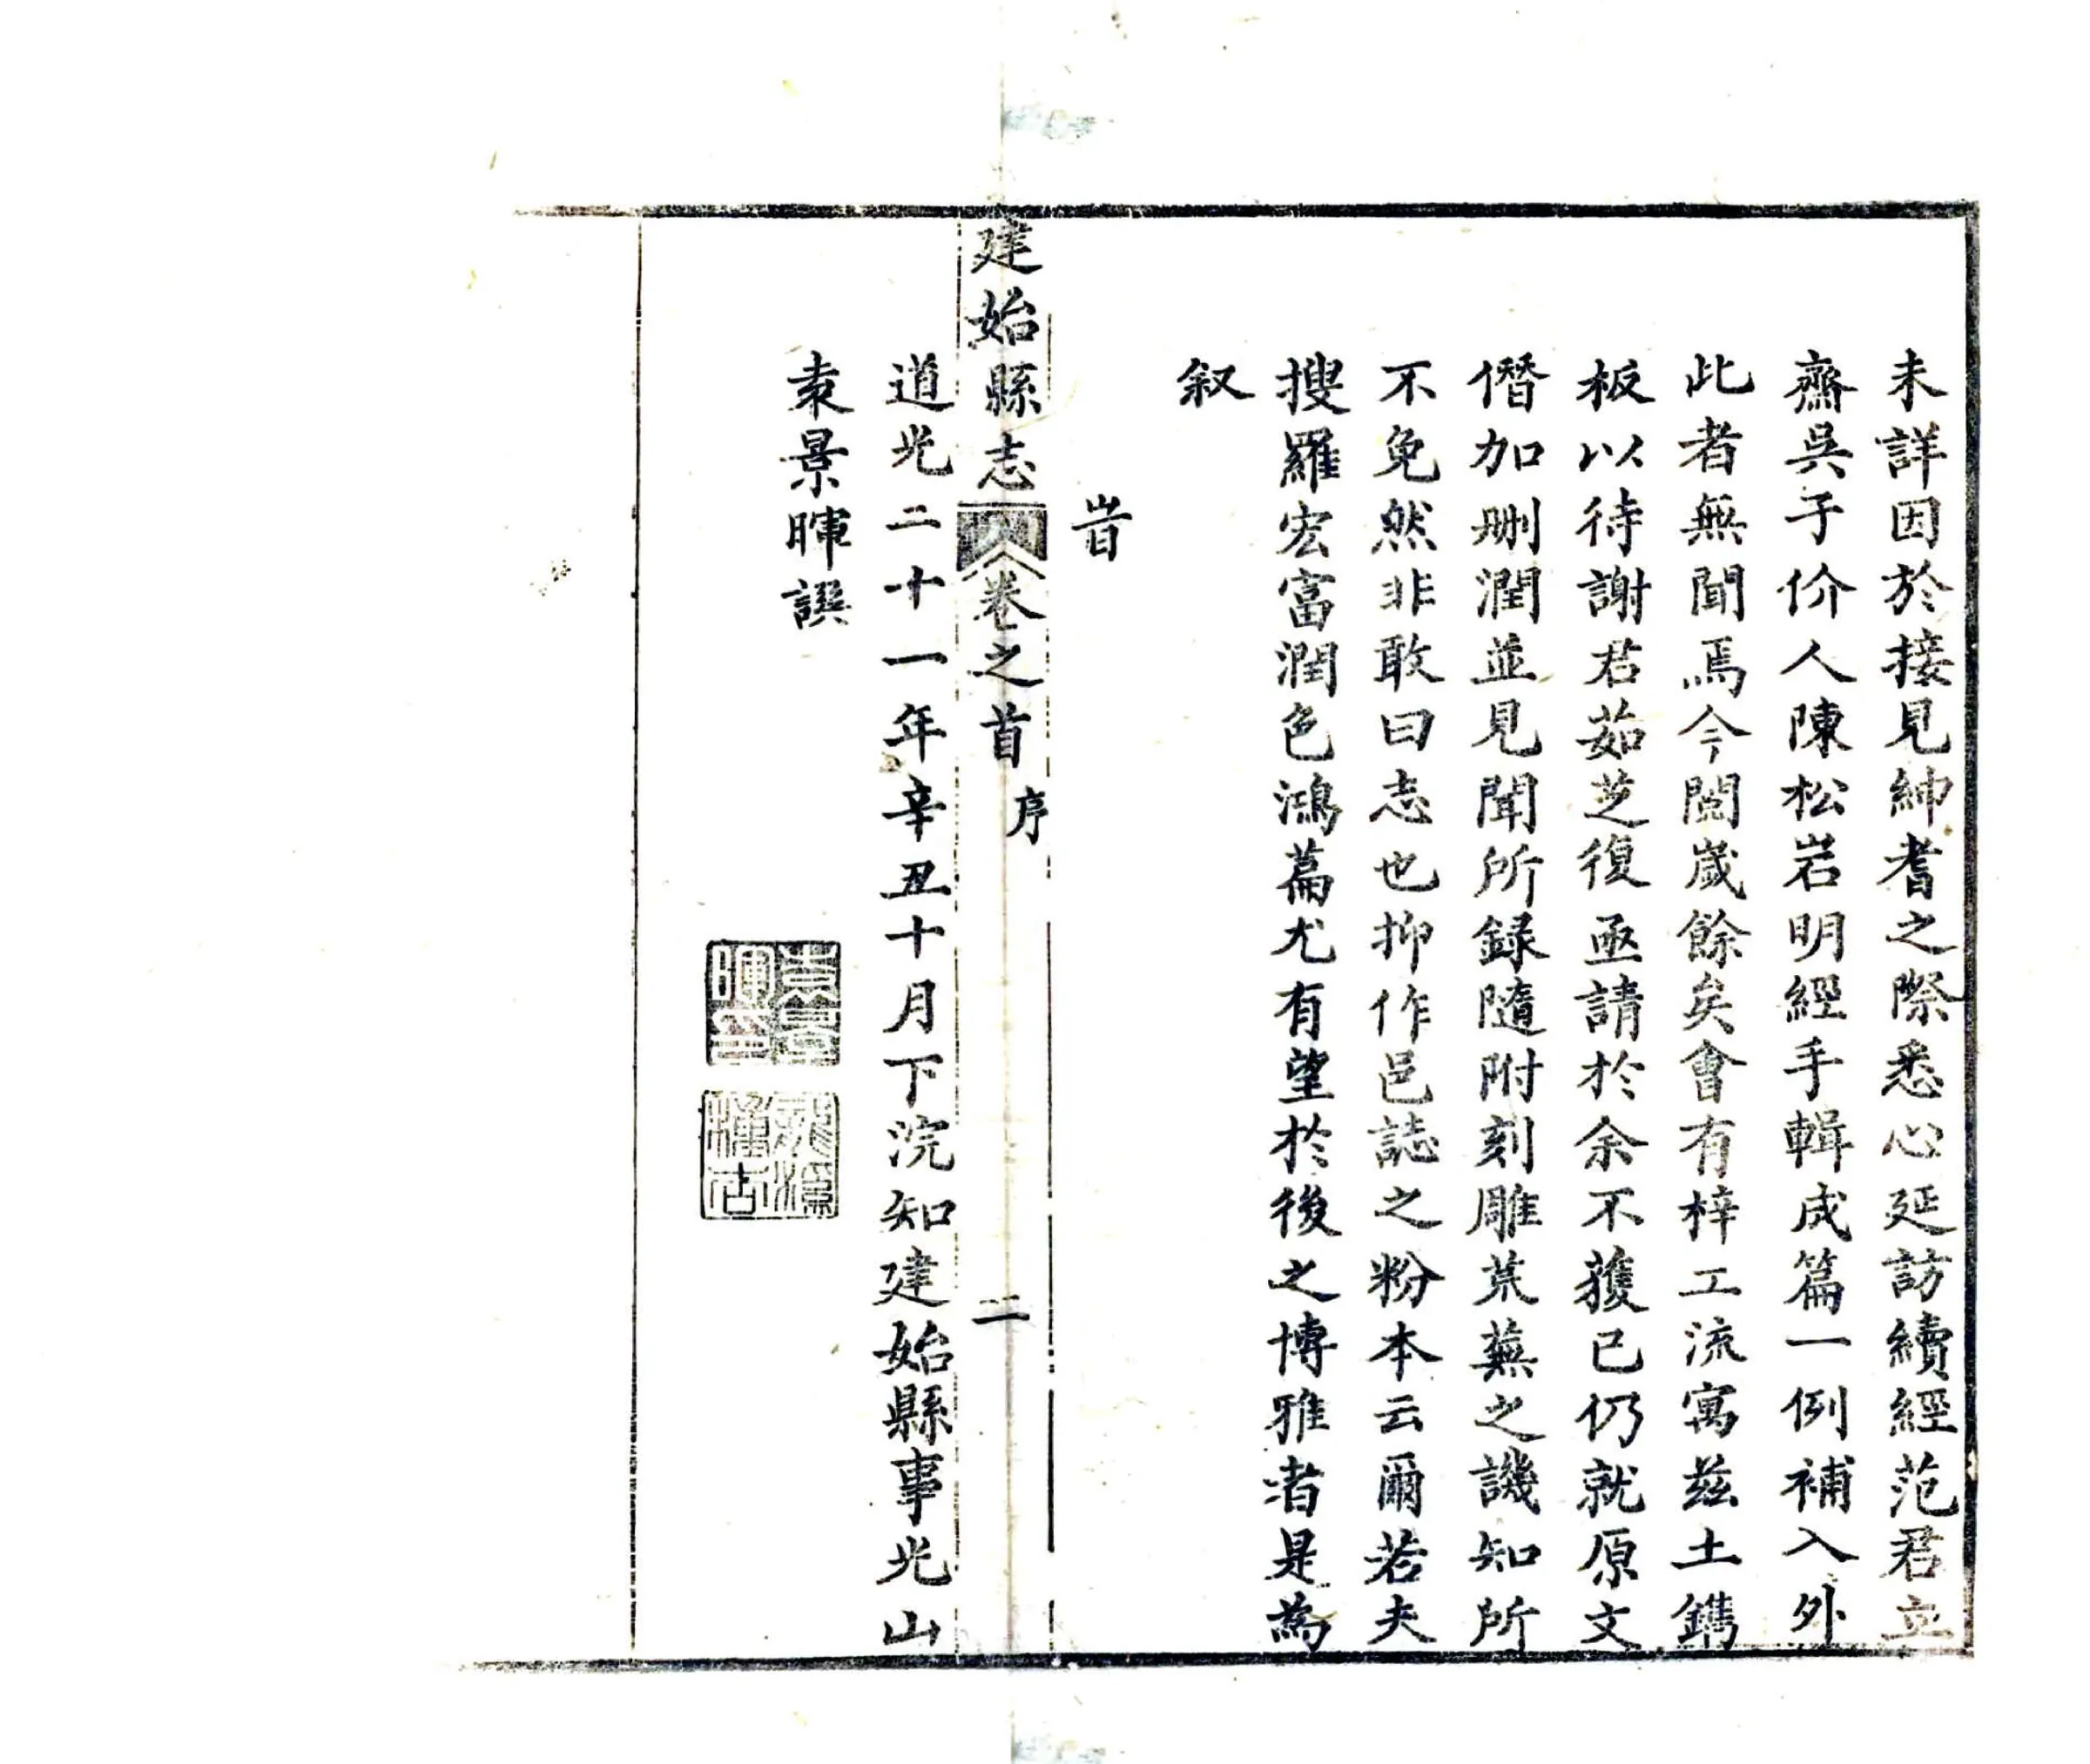 未詳因於接見紳耆之際悉心延訪續經范君立
齋吳子价人陳松岩明經手輯成篇一例補入外
此者無聞焉今閱歲餘矣會有梓工流寓兹土鐫
板以待謝君茹芝復亟請於余不獲已仍就原文
僭加刪潤並見聞所録隨附刻雕荒蕪之譏知所
不免然非敢曰志也抑作邑誌之粉本云爾若夫
搜羅宏富潤色鴻篇尤有望於後之博雅者是為
叙
旹
建始縣志
卷之首
序
二
道光二十一年辛丑十月下浣知建始縣事光山
袁景暉譔
袁景暉印